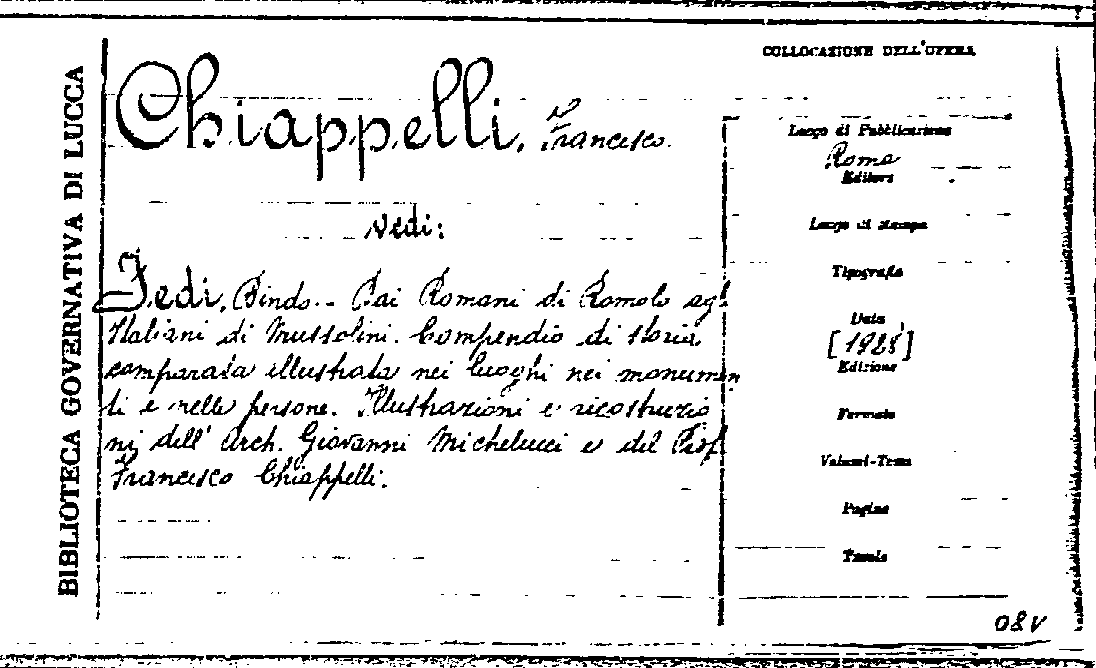 BIBLIOTECA GOVERNATIVA DI LUCCA
COLLOCAZIONE DELL'OPERA
Chiappelli, Francesco.
Vedi:
Fedi, Bindo. - Dai Romani di Romolo agl'
Italiani di Mussolini. Compendio di storia
comparata illustrata nei luoghi nei monumen
ti e nelle persone. Illustrazioni e ricostruzio
ni dell' Arch. Giovanni Michelucci e del Prof.
Francesco Chiappelli.
Luogo di Pubblicazione
Roma
Editore
Luogo di Stampa
Tipografia
Data
[1928]
Edizione
Formato
Volumi-Tomi
Pagine
Tavole